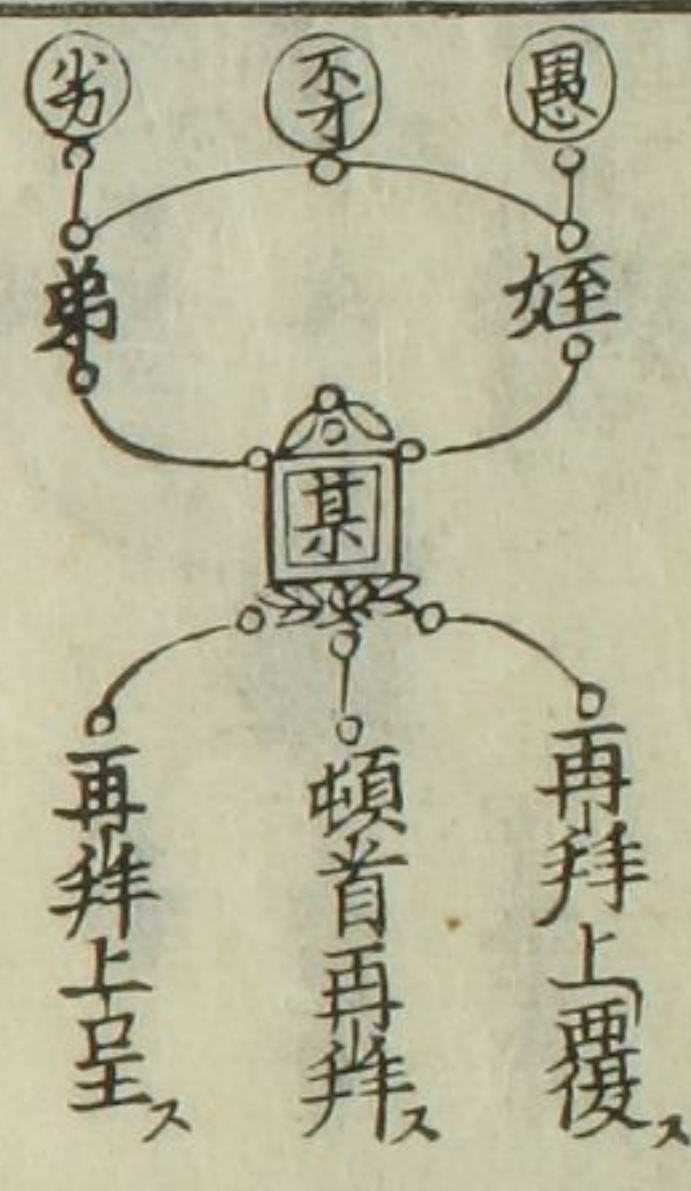 愚
不才
劣
姪
弟
某
再拜上覆ス
頓首再拜ス
再拜上呈ス